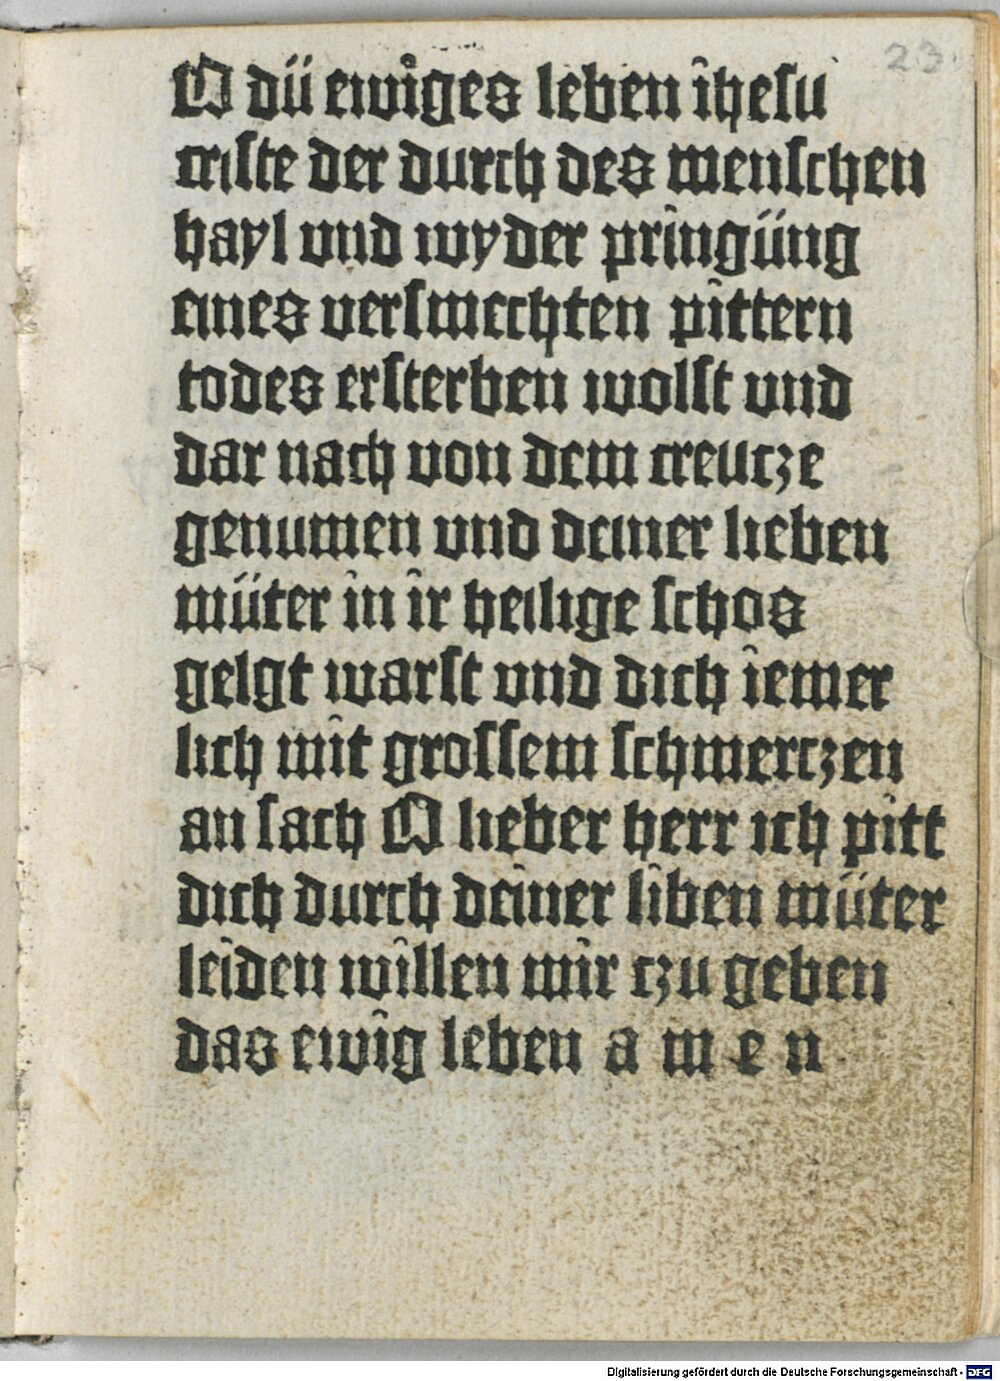 23
O dü ewiges leben ihesu
criste der durch des menschen
hayl vnd wyder pringüng
eines versmechten pittern
todes ersterben wolst vnd
dar nach von dem creucze
genumen vnd deiner lieben
müter in ir heilige schos
gelgt warst vnd dich iemer
lich mit grossem schmerczen
an sach O lieber herr ich pitt
dich durch deiner liben müter
leiden willen mir czu geben
das ewig leben a m e n
Digitalisierung gefördert durch die Deutsche Forschungsgemeinschaft - DFG